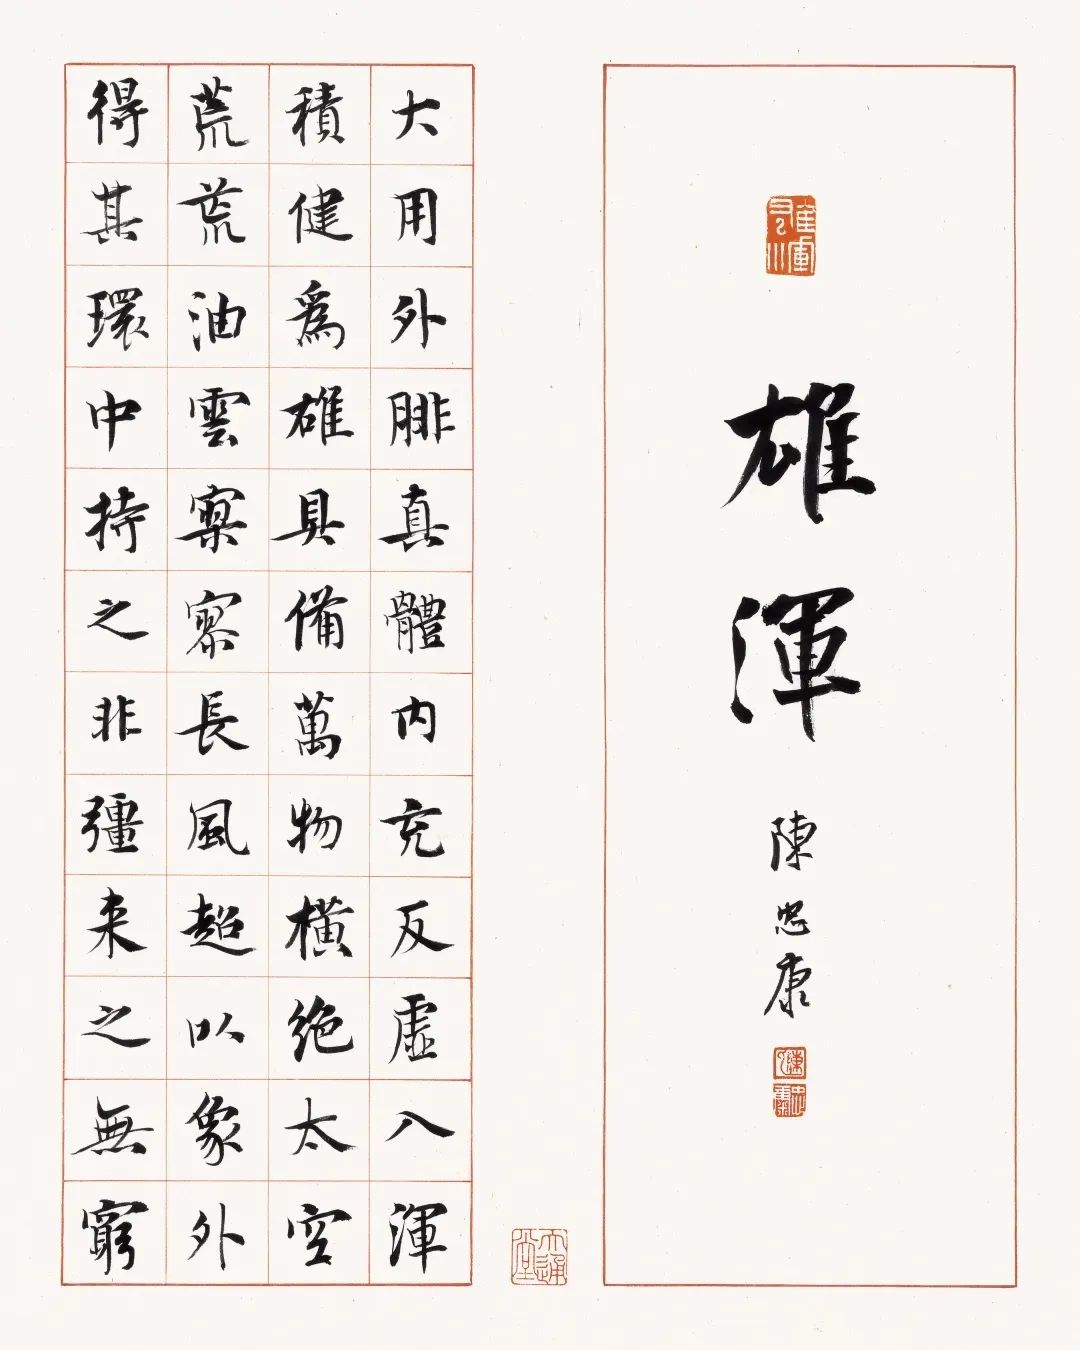 雄渾
陳忠康
大用外腓真體内充反虛入渾
積健爲雄具備萬物橫絶太空
荒荒油雲寥寥長風超以象外
得其環中持之非彊来之無窮